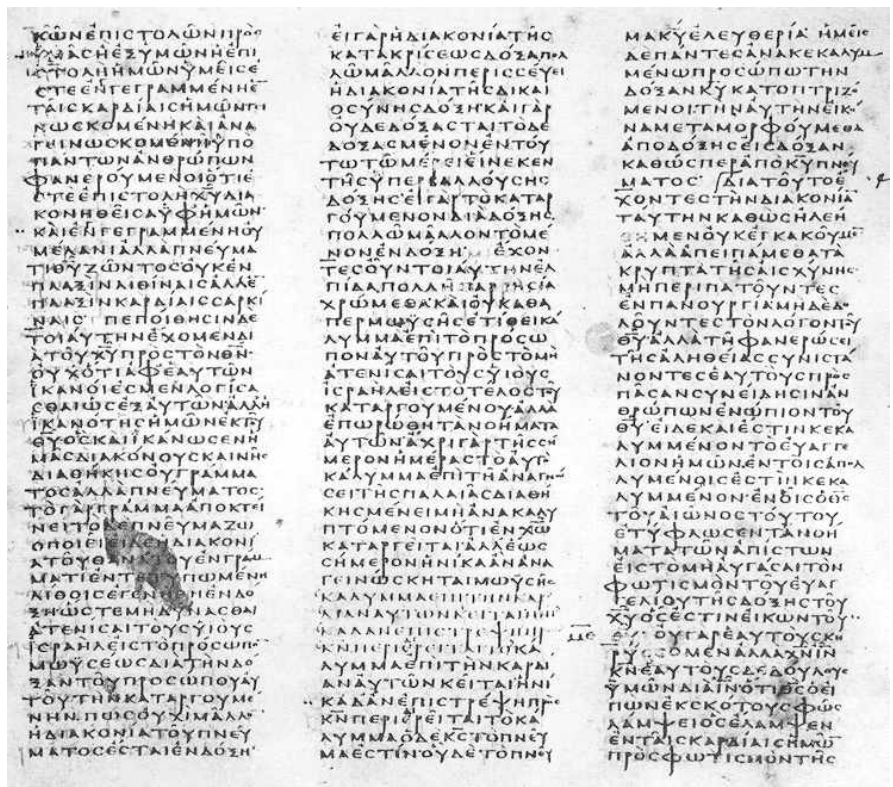 ΚΩΝΕΠΙΣΤΟΛΩΝΠΡΟΣ
ΥΜΑΣΗΕΞΥΜΩΝΗΕΠΙ
ΣΤΟΛΗΗΜΩΝΥΜΕΙΣΕ
ΣΤΕΕΝΓΕΓΡΑΜΜΕΝΗΕ
ΤΑΙΣΚΑΡΔΙΑΙΣΗΜΩΝΓΕΙ
ΝΩΣΚΟΜΕΝΗΚΑΙΑΝΑ
ΓΕΙΝΩΣΚΟΜΕΝΗΥΠΟ
ΠΑΝΤΩΝΑΝΘΡΩΠΩΝ
ΦΑΝΕΡΟΥΜΕΝΟΙΟΤΙΕ
ΣΤΕΕΠΙΣΤΟΛΗΧΥΔΙΑ
ΚΟΝΗΘΕΙΣΑΥΦΗΜΩΝ
ΚΑΙΕΝΓΕΓΡΑΜΜΕΝΗΟΥ
ΜΕΛΑΝΙΑΛΛΑΠΝΕΥΜΑ
ΤΙΘΥΖΩΝΤΟΣΟΥΚΕΝ
ΠΛΑΞΙΝΛΙΘΙΝΑΙΣΑΛΛΕ
ΠΛΑΞΙΝΚΑΡΔΙΑΙΣΣΑΡΚΙ
ΝΑΙΣ ΠΕΠΟΙΘΗΣΙΝΔΕ
ΤΟΙΑΥΤΗΝΕΧΟΜΕΝΔΙ
ΑΤΟΥΧΥΠΡΟΣΤΟΝΘΝ
ΟΥΧΟΤΙΑΦΕΑΥΤΩΝ
ΙΚΑΝΟΙΕΣΜΕΝΛΟΓΙΣΑ
ΣΘΑΙΩΣΕΞΑΥΤΩΝΑΛΛΗ
ΙΚΑΝΟΤΗΣΗΜΩΝΕΚΤΟΥ
ΘΥΟΣΚΑΙΙΚΑΝΩΣΕΝΗ
ΜΑΣΔΙΑΚΟΝΟΥΣΚΑΙΝΗΣ
ΔΙΑΘΗΚΗΣΟΥΓΡΑΜΜΑ
ΤΟΣΑΛΛΑΠΝΕΥΜΑΤΟΣ
ΤΟΓΑΡΓΡΑΜΜΑΑΠΟΚΤΕΙ
ΝΕΙΤΟΔΕΠΝΕΥΜΑΖΩ
ΟΠΟΙΕΙΕΙΔΕΗΔΙΑΚΟΝΙ
ΑΤΟΥΘΑΝΑΤΟΥΕΝΓΡΑΜ
ΜΑΤΙΕΝΤΕΤΥΠΩΜΕΝΗ
ΛΙΘΟΙΣΕΓΕΝΗΘΗΕΝΔΟ
ΞΗΩΣΤΕΜΗΔΥΝΑΣΘΑΙ
ΑΤΕΝΙΣΑΙΤΟΥΣΥΙΟΥΣ
ΙΣΡΑΗΛΕΙΣΤΟΠΡΟΣΩΠΟ
ΜΩΥΣΕΩΣΔΙΑΤΗΝΔΟ
ΞΑΝΤΟΥΠΡΟΣΩΠΟΥΑΥ
ΤΟΥΤΗΝΚΑΤΑΡΓΟΥΜΕ
ΝΗΝΠΩΣΟΥΧΙΜΑΛΛΟ
ΗΔΙΑΚΟΝΙΑΤΟΥΠΝΕΥ
ΜΑΤΟΣΕΣΤΑΙΕΝΔΟΞΗ
ΕΙΓΑΡΗΔΙΑΚΟΝΙΑΤΗΣ
ΚΑΤΑΚΡΙΣΕΩΣΔΟΞΑΠΟΛ
ΛΩΜΑΛΛΟΝΠΕΡΙΣΣΕΥΕΙ
ΗΔΙΑΚΟΝΙΑΤΗΣΔΙΚΑΙ
ΟΣΥΝΗΣΔΟΞΗΚΑΙΓΑΡ
ΟΥΔΕΔΟΞΑΣΤΑΙΤΟΔΕ
ΔΟΞΑΣΜΕΝΟΝΕΝΤΟΥ
ΤΩΤΩΜΕΡΕΙΕΙΝΕΚΕΝ
ΤΗΣΥΠΕΡΒΑΛΛΟΥΣΗΣ
ΔΟΞΗΣΕΙΓΑΡΤΟΚΑΤΑΡ
ΓΟΥΜΕΝΟΝΔΙΑΔΟΞΗΣ
ΠΟΛΛΩΜΑΛΛΟΝΤΟΜΕ
ΝΟΝΕΝΔΟΞΗ ΕΧΟΝ
ΤΕΣΟΥΝΤΟΙΑΥΤΗΝΕΛ
ΠΙΔΑΠΟΛΛΗΠΑΡΡΗΣΙΑ
ΧΡΩΜΕΘΑΚΑΙΟΥΚΑΘΑ
ΠΕΡΜΩΥΣΗΣΕΤΙΘΕΙΚΑ
ΛΥΜΜΑΕΠΙΤΟΠΡΟΣΩ
ΠΟΝΑΥΤΟΥΠΡΟΣΤΟΜΗ
ΑΤΕΝΙΣΑΙΤΟΥΣΥΙΟΥΣ
ΙΣΡΑΗΛΕΙΣΤΟΤΕΛΟΣΤΟΥ
ΚΑΤΑΡΓΟΥΜΕΝΟΥΑΛΛΑ
ΕΠΩΡΩΘΗΤΑΝΟΗΜΑΤΑ
ΑΥΤΩΝΑΧΡΙΓΑΡΤΗΣΣΗ
ΜΕΡΟΝΗΜΕΡΑΣΤΟΑΥΤΟ
ΚΑΛΥΜΜΑΕΠΙΤΗΑΝΑΓΝΩ
ΣΕΙΤΗΣΠΑΛΑΙΑΣΔΙΑΘΗ
ΚΗΣΜΕΝΕΙΜΗΑΝΑΚΑΛΥ
ΠΤΟΜΕΝΟΝΟΤΙΕΝΧΩ
ΚΑΤΑΡΓΕΙΤΑΙΑΛΛΕΩΣ
ΣΗΜΕΡΟΝΗΝΙΚΑΑΝΑΝΑ
ΓΕΙΝΩΣΚΗΤΑΙΜΩΥΣΗΣ
ΚΑΛΥΜΜΑΕΠΙΤΗΝΚΑΡ
ΔΙΑΝΑΥΤΩΝΚΕΙΤΑΙΗΝΙ
ΚΑΔΑΝΕΠΙΣΤΡΕΨΗΠΡΟΣ
ΚΝΠΕΡΙΕΡΕΙΤΑΙΤΟΚΑ
ΛΥΜΜΑΕΠΙΤΗΝΚΑΡΔΙ
ΑΝΑΥΤΩΝΚΕΙΤΑΙΗΝΙ
ΚΑΔΑΝΕΠΙΣΤΡΕΨΗΠΡΟΣ
ΚΝΠΕΡΙΕΡΕΙΤΑΙΤΟΚΑ
ΛΥΜΜΑΟΔΕΚΣΤΟΠΝΕΥ
ΜΑΕΣΤΙΝΟΥΔΕΤΟΠΝΕΥ
ΜΑΚΥΕΛΕΥΘΕΡΙΑ ΗΜΕΙΣ
ΔΕΠΑΝΤΕΣΑΝΑΚΕΚΑΛΥΜ
ΜΕΝΩΠΡΟΣΩΠΩΤΗΝ
ΔΟΞΑΝΚΥΚΑΤΟΠΤΡΙΖΟ
ΜΕΝΟΙΤΗΝΑΥΤΗΝΕΙΚΟ
ΝΑΜΕΤΑΜΟΡΦΟΥΜΕΘΑ
ΑΠΟΔΟΞΗΣΕΙΣΔΟΞΑΝ
ΚΑΘΩΣΠΕΡΑΠΟΚΥΠΝΕΥ
ΜΑΤΟΣ ΔΙΑΤΟΥΤΟΕ
ΧΟΝΤΕΣΤΗΝΔΙΑΚΟΝΙΑ
ΤΑΥΤΗΝΚΑΘΩΣΗΛΕΗ
ΘΗΜΕΝΟΥΚΕΓΚΑΚΟΥΜΕΝ
ΑΛΛΑΑΠΕΙΠΑΜΕΘΑΤΑ
ΚΡΥΠΤΑΤΗΣΑΙΣΧΥΝΗΣ
ΜΗΠΕΡΙΠΑΤΟΥΝΤΕΣ
ΕΝΠΑΝΟΥΡΓΙΑΜΗΔΕΔΟ
ΛΟΥΝΤΕΣΤΟΝΛΟΓΟΝΤΟΥ
ΘΥΑΛΛΑΤΗΦΑΝΕΡΩΣΕΙ
ΤΗΣΑΛΗΘΕΙΑΣΣΥΝΙΣΤΑ
ΝΟΝΤΕΣΕΑΥΤΟΥΣΠΡΟΣ
ΠΑΣΑΝΣΥΝΕΙΔΗΣΙΝΑΝ
ΘΡΩΠΩΝΕΝΩΠΙΟΝΤΟΥ
ΘΥΕΙΔΕΚΑΙΕΣΤΙΝΚΕΚΑ
ΛΥΜΜΕΝΟΝΤΟΕΥΑΓΓΕ
ΛΙΟΝΗΜΩΝΕΝΤΟΙΣΑΠΟΛ
ΛΥΜΕΝΟΙΣΕΣΤΙΝΚΕΚΑ
ΛΥΜΜΕΝΟΝΕΝΟΙΣΟΘΣ
ΤΟΥΑΙΩΝΟΣΤΟΥΤΟΥ
ΕΤΥΦΛΩΣΕΝΤΑΝΟΗ
ΜΑΤΑΤΩΝΑΠΙΣΤΩΝ
ΕΙΣΤΟΜΗΑΥΓΑΣΑΙΤΟΝ
ΦΩΤΙΣΜΟΝΤΟΥΕΥΑΓ
ΓΕΛΙΟΥΤΗΣΔΟΞΗΣΤΟΥ
ΧΥΟΣΕΣΤΙΝΕΙΚΩΝΤΟΥ
ΜΕ
ΘΥ ΟΥΓΑΡΕΑΥΤΟΥΣΚΗ
ΡΥΣΣΟΜΕΝΑΛΛΑΧΝΙΝ
ΚΝΕΑΥΤΟΥΣΔΕΔΟΥΛΟΥΣ
ΥΜΩΝΔΙΑΙΝΟΤΙΟΘΣΟΕΙ
ΠΩΝΕΚΣΚΟΤΟΥΣΦΩΣ
ΛΑΜΨΕΙΟΣΕΛΑΜΨΕΝ
ΕΝΤΑΙΣΚΑΡΔΙΑΙΣΗΜΩΝ
ΠΡΟΣΦΩΤΙΣΜΟΝΤΗΣ